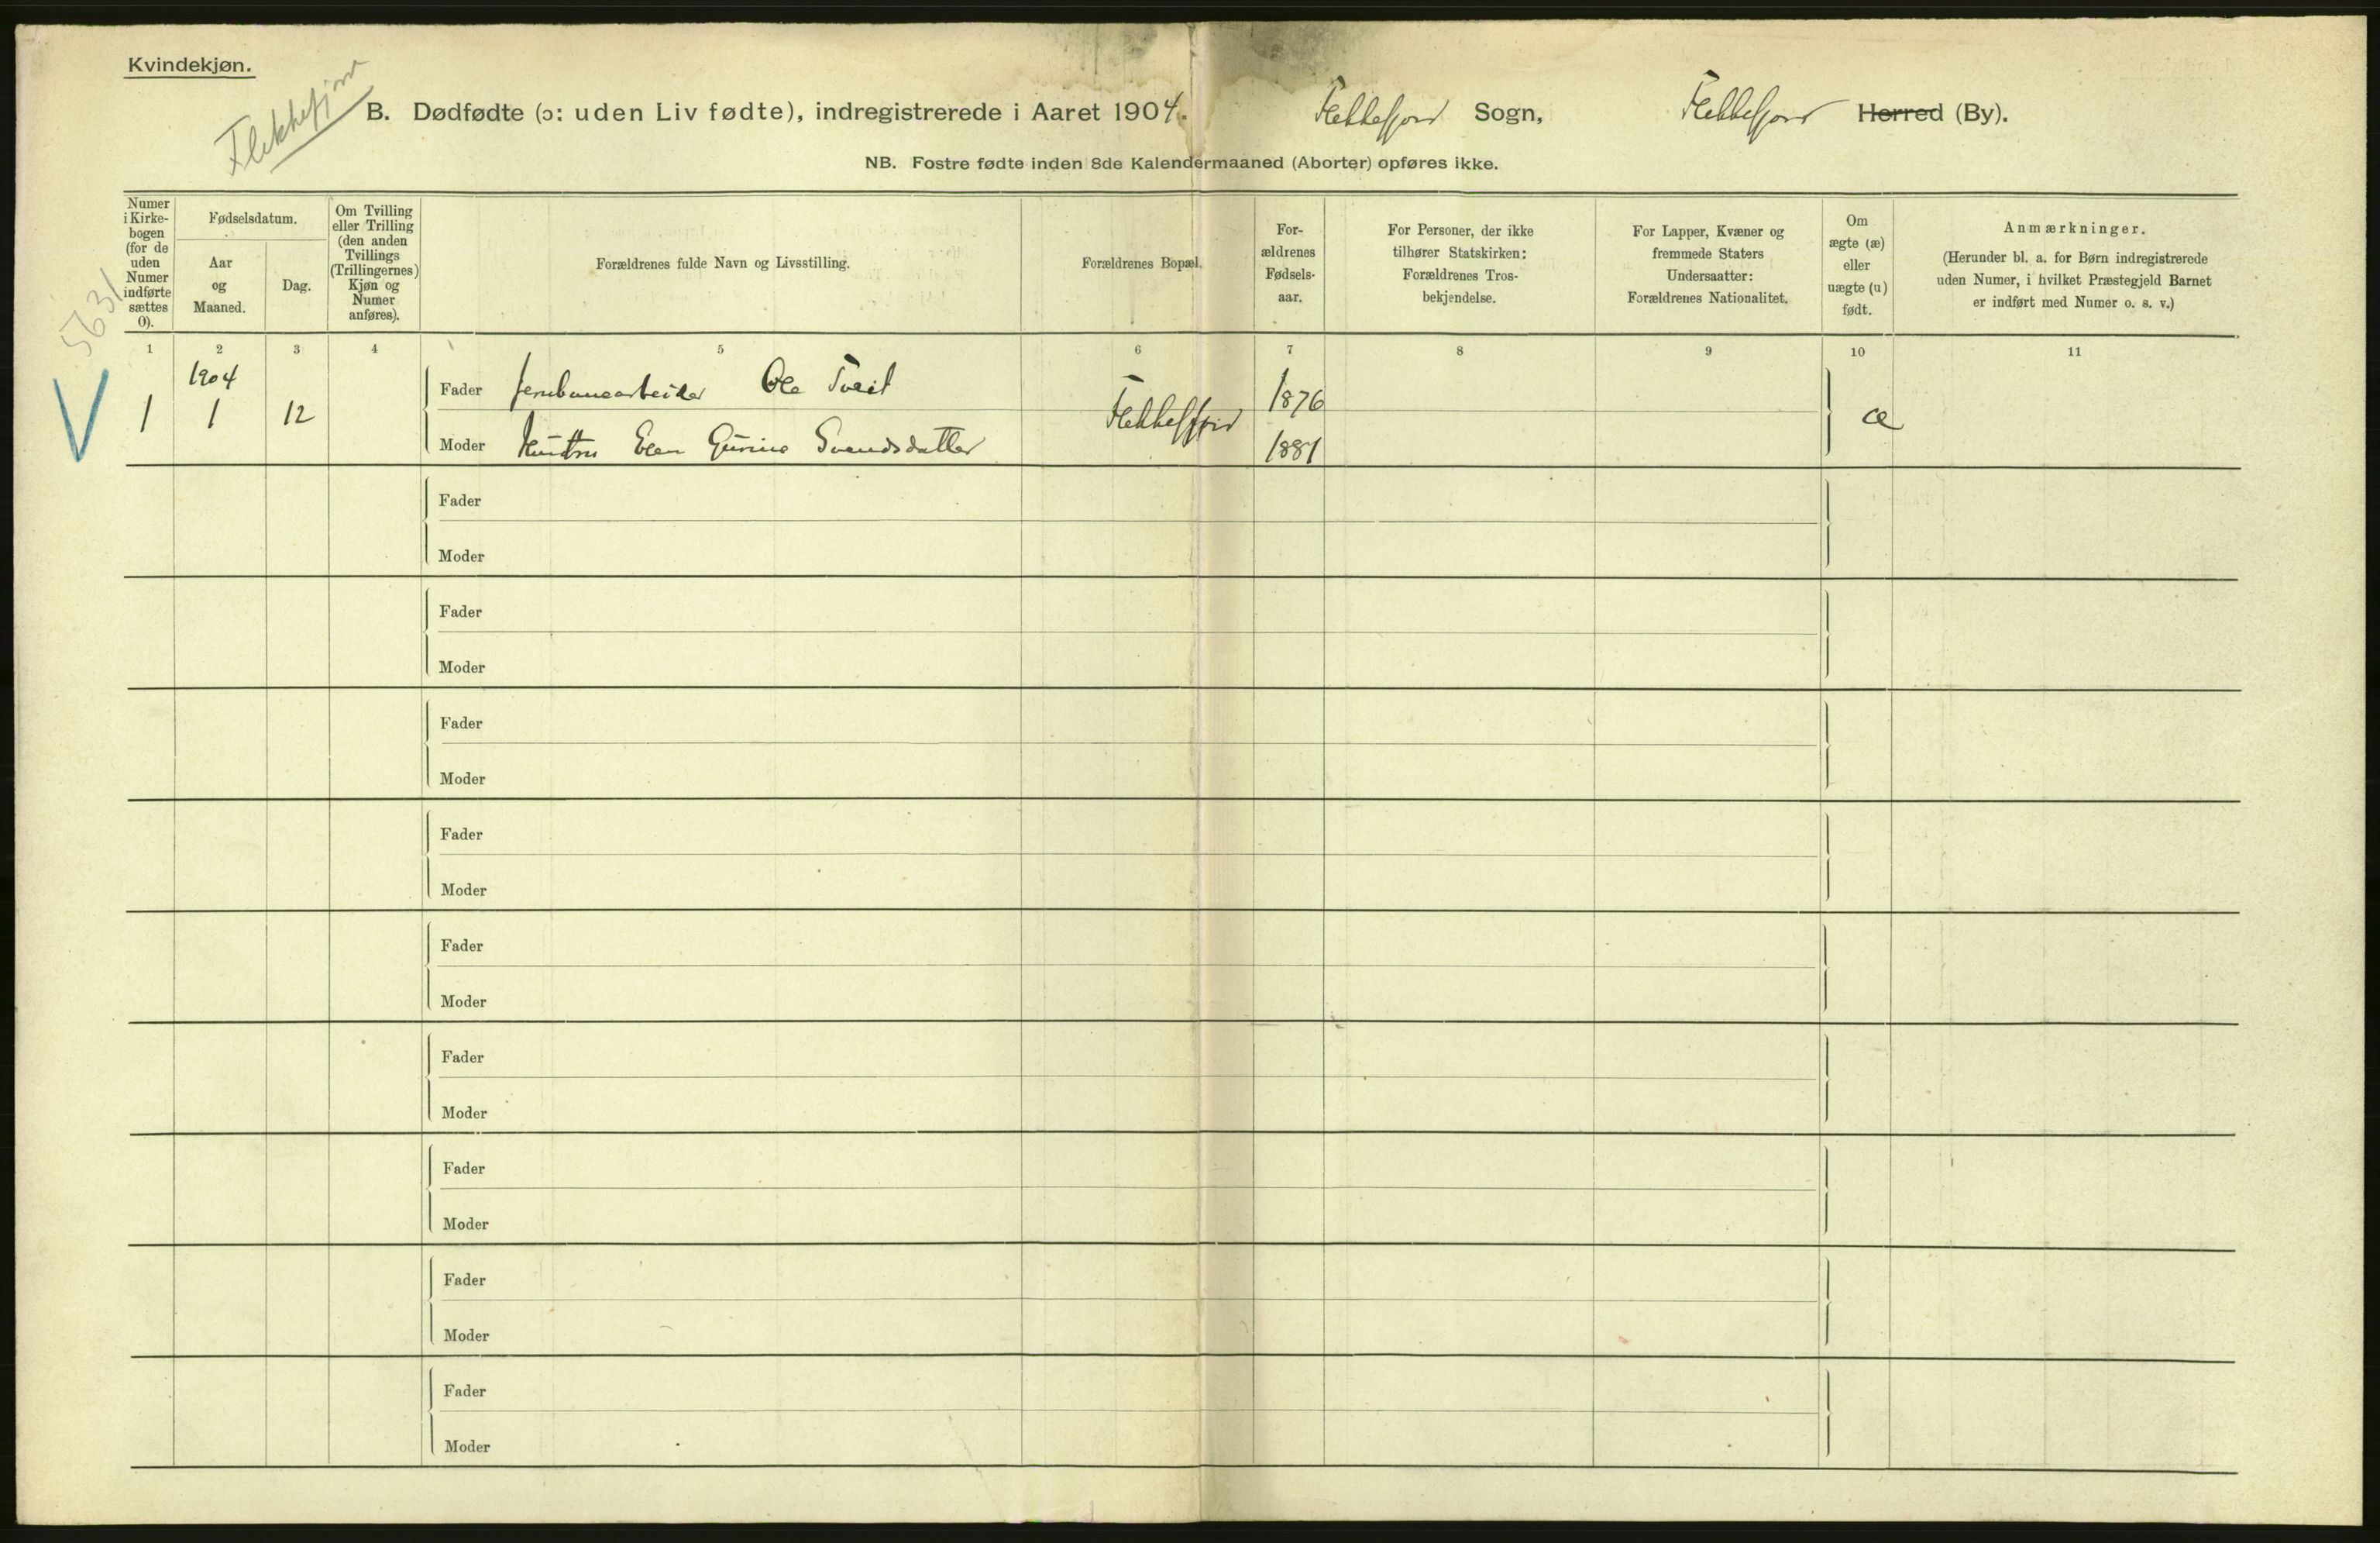 Kvindekjøn.
Flekkefjord
B. Dødfødte (ɔ: uden Liv fødte), indregistrerede i Aaret 1904. Flekkefjord Sogn, Flekkefjord Herred (By).
NB. Fostre fødte inden 8de Kalendermaaned (Aborter) opføres ikke.
Numer
i Kirke-
bogen
(for de
uden
Numer
indførte
sættes
0).
Fødselsdatum.
Aar
og
Maaned.
Dag.
Om Tvilling
eller Trilling
(den anden
Tvillings
(Trillingernes)
Kjøn og
Numer
anføres).
Forældrenes fulde Navn og Livsstilling.
Forældrenes Bopæl.
For-
ældrenes
Fødsels-
aar.
For Personer, der ikke
tilhører Statskirken:
Forældrenes Tros-
bekjendelse.
For Lapper, Kvæner og
fremmede Staters
Undersaatter:
Forældrenes Nationalitet.
Om
ægte (æ)
eller
uægte (u)
født.
Anmærkninger.
(Herunder bl. a. for Børn indregistrerede
uden Numer, i hvilket Præstegjeld Barnet
er indført med Numer o. s. v.)
5631
1 2 3 4 5 6 7 8 9 10 11
V
1904
1 1 12
Fader Jernbanearbeider Ole Tveit
Moder Hustru Elen Gurine Svendsdatter
Flekkefjord
1876
1881
æ
Fader
Moder
Fader
Moder
Fader
Moder
Fader
Moder
Fader
Moder
Fader
Moder
Fader
Moder
Fader
Moder
Fader
Moder